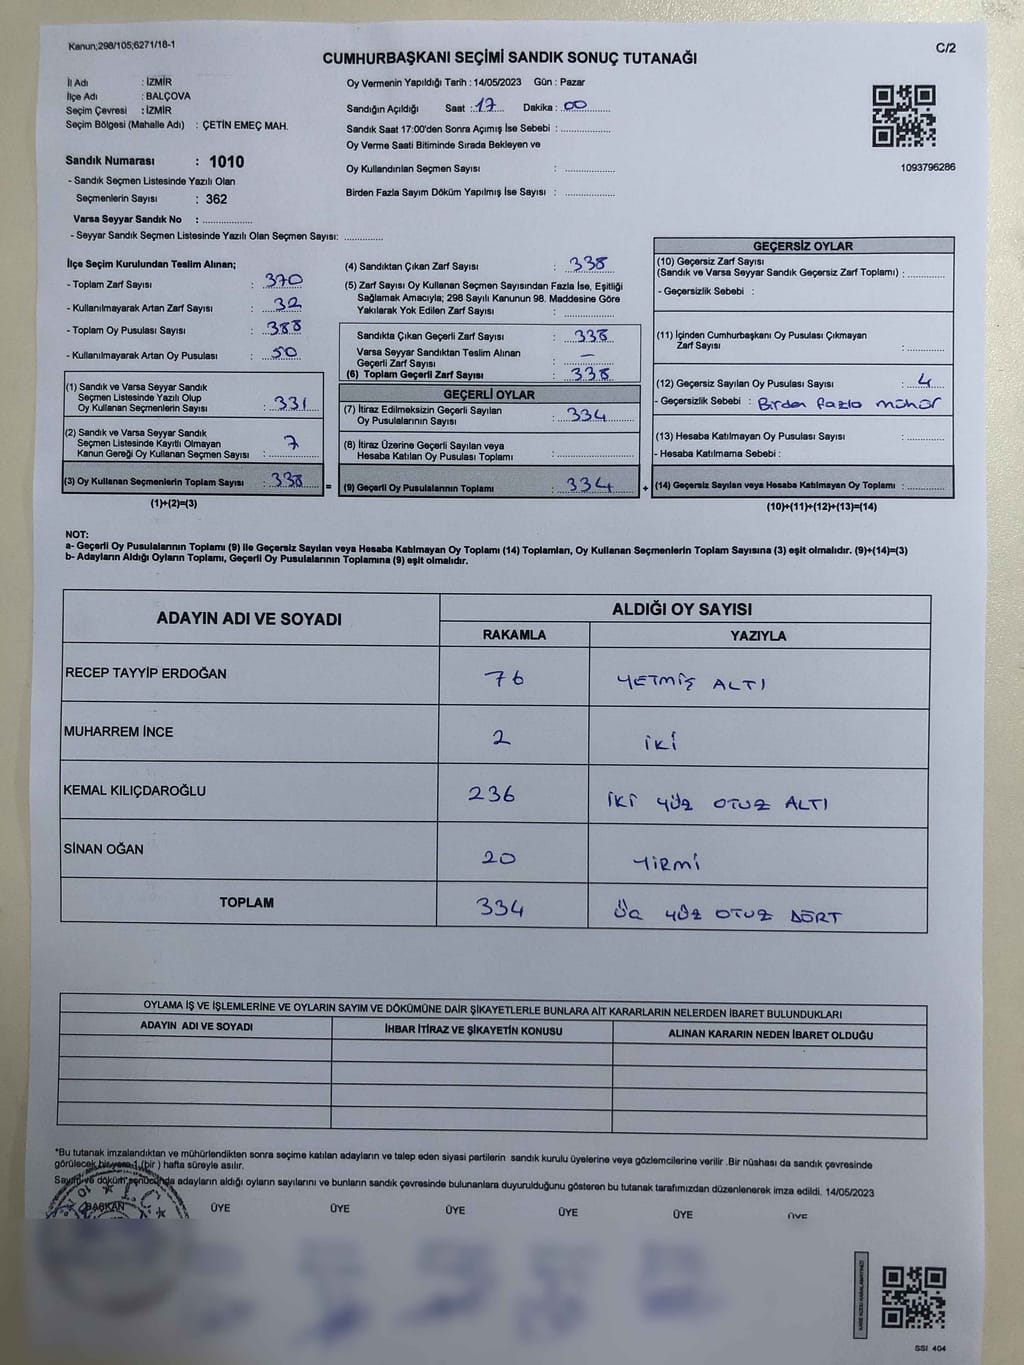 Kanun;298/105;6271/18-1
C/2
CUMHURBAŞKANI SEÇİMİ SANDIK SONUÇ TUTANAĞI
İl Adı : İZMİR
İlçe Adı : BALÇOVA
Seçim Çevresi : İZMİR
Seçim Bölgesi (Mahalle Adı) : ÇETİN EMEÇ MAH.
Sandık Numarası : 1010
- Sandık Seçmen Listesinde Yazılı Olan
Seçmenlerin Sayısı : 362
Varsa Seyyar Sandık No : ..............
- Seyyar Sandık Seçmen Listesinde Yazılı Olan Seçmen Sayısı: ..............
Oy Vermenin Yapıldığı Tarih : 14/05/2023 Gün : Pazar
Sandığın Açıldığı Saat : 17 Dakika : 00
Sandık Saat 17:00'den Sonra Açımış İse Sebebi : ..............
Oy Verme Saati Bitiminde Sırada Bekleyen ve
Oy Kullandırılan Seçmen Sayısı : ..............
Birden Fazla Sayım Döküm Yapılmış İse Sayısı : ..............
1093796286
İlçe Seçim Kurulundan Teslim Alınan;
- Toplam Zarf Sayısı : 370
- Kullanılmayarak Artan Zarf Sayısı : 32
- Toplam Oy Pusulası Sayısı : 388
- Kullanılmayarak Artan Oy Pusulası : 50
(1) Sandık ve Varsa Seyyar Sandık
Seçmen Listesinde Yazılı Olup
Oy Kullanan Seçmenlerin Sayısı : 331
(2) Sandık ve Varsa Seyyar Sandık
Seçmen Listesinde Kayıtlı Olmayan
Kanun Gereği Oy Kullanan Seçmen Sayısı : 7
(3) Oy Kullanan Seçmenlerin Toplam Sayısı : 338
(1)+(2)=(3)
(4) Sandıktan Çıkan Zarf Sayısı : 338
(5) Zarf Sayısı Oy Kullanan Seçmen Sayısından Fazla İse, Eşitliği
Sağlamak Amacıyla; 298 Sayılı Kanunun 98. Maddesine Göre
Yakılarak Yok Edilen Zarf Sayısı : ..............
Sandıkta Çıkan Geçerli Zarf Sayısı : 338
Varsa Seyyar Sandıktan Teslim Alınan
Geçerli Zarf Sayısı : —
(6) Toplam Geçerli Zarf Sayısı : 338
GEÇERLİ OYLAR
(7) İtiraz Edilmeksizin Geçerli Sayılan
Oy Pusulalarının Sayısı : 334
(8) İtiraz Üzerine Geçerli Sayılan veya
Hesaba Katılan Oy Pusulası Toplamı : ..............
= (9) Geçerli Oy Pusulalarının Toplamı : 334 +
GEÇERSİZ OYLAR
(10) Geçersiz Zarf Sayısı
(Sandık ve Varsa Seyyar Sandık Geçersiz Zarf Toplamı) : ..............
- Geçersizlik Sebebi :
(11) İçinden Cumhurbaşkanı Oy Pusulası Çıkmayan
Zarf Sayısı : ..............
(12) Geçersiz Sayılan Oy Pusulası Sayısı : 4
- Geçersizlik Sebebi : Birden fazla mühür
(13) Hesaba Katılmayan Oy Pusulası Sayısı : ..............
- Hesaba Katılmama Sebebi :
(14) Geçersiz Sayılan veya Hesaba Katılmayan Oy Toplamı : ..............
(10)+(11)+(12)+(13)=(14)
NOT:
a- Geçerli Oy Pusulalarının Toplamı (9) ile Geçersiz Sayılan veya Hesaba Katılmayan Oy Toplamı (14) Toplamları, Oy Kullanan Seçmenlerin Toplam Sayısına (3) eşit olmalıdır. (9)+(14)=(3)
b- Adayların Aldığı Oyların Toplamı, Geçerli Oy Pusulalarının Toplamına (9) eşit olmalıdır.
ADAYIN ADI VE SOYADI
ALDIĞI OY SAYISI
RAKAMLA YAZIYLA
RECEP TAYYİP ERDOĞAN 76 YETMİŞ ALTI
MUHARREM İNCE 2 İKİ
KEMAL KILIÇDAROĞLU 236 İKİ YÜZ OTUZ ALTI
SİNAN OĞAN 20 YİRMİ
TOPLAM 334 ÜÇ YÜZ OTUZ DÖRT
OYLAMA İŞ VE İŞLEMLERİNE VE OYLARIN SAYIM VE DÖKÜMÜNE DAİR ŞİKAYETLERLE BUNLARA AİT KARARLARIN NELERDEN İBARET BULUNDUKLARI
ADAYIN ADI VE SOYADI İHBAR İTİRAZ VE ŞİKAYETİN KONUSU ALINAN KARARIN NEDEN İBARET OLDUĞU
*Bu tutanak imzalandıktan ve mühürlendikten sonra seçime katılan adayların ve talep eden siyasi partilerin sandık kurulu üyelerine veya gözlemcilerine verilir .Bir nüshası da sandık çevresinde
görülecek bir yere 1 (bir ) hafta süreyle asılır.
Sayım ve döküm sonucunda adayların aldığı oyların sayılarını ve bunların sandık çevresinde bulunanlara duyurulduğunu gösteren bu tutanak tarafımızdan düzenlenerek imza edildi. 14/05/2023
BAŞKAN ÜYE ÜYE ÜYE ÜYE ÜYE ÜYE
T.C.
SSI 404